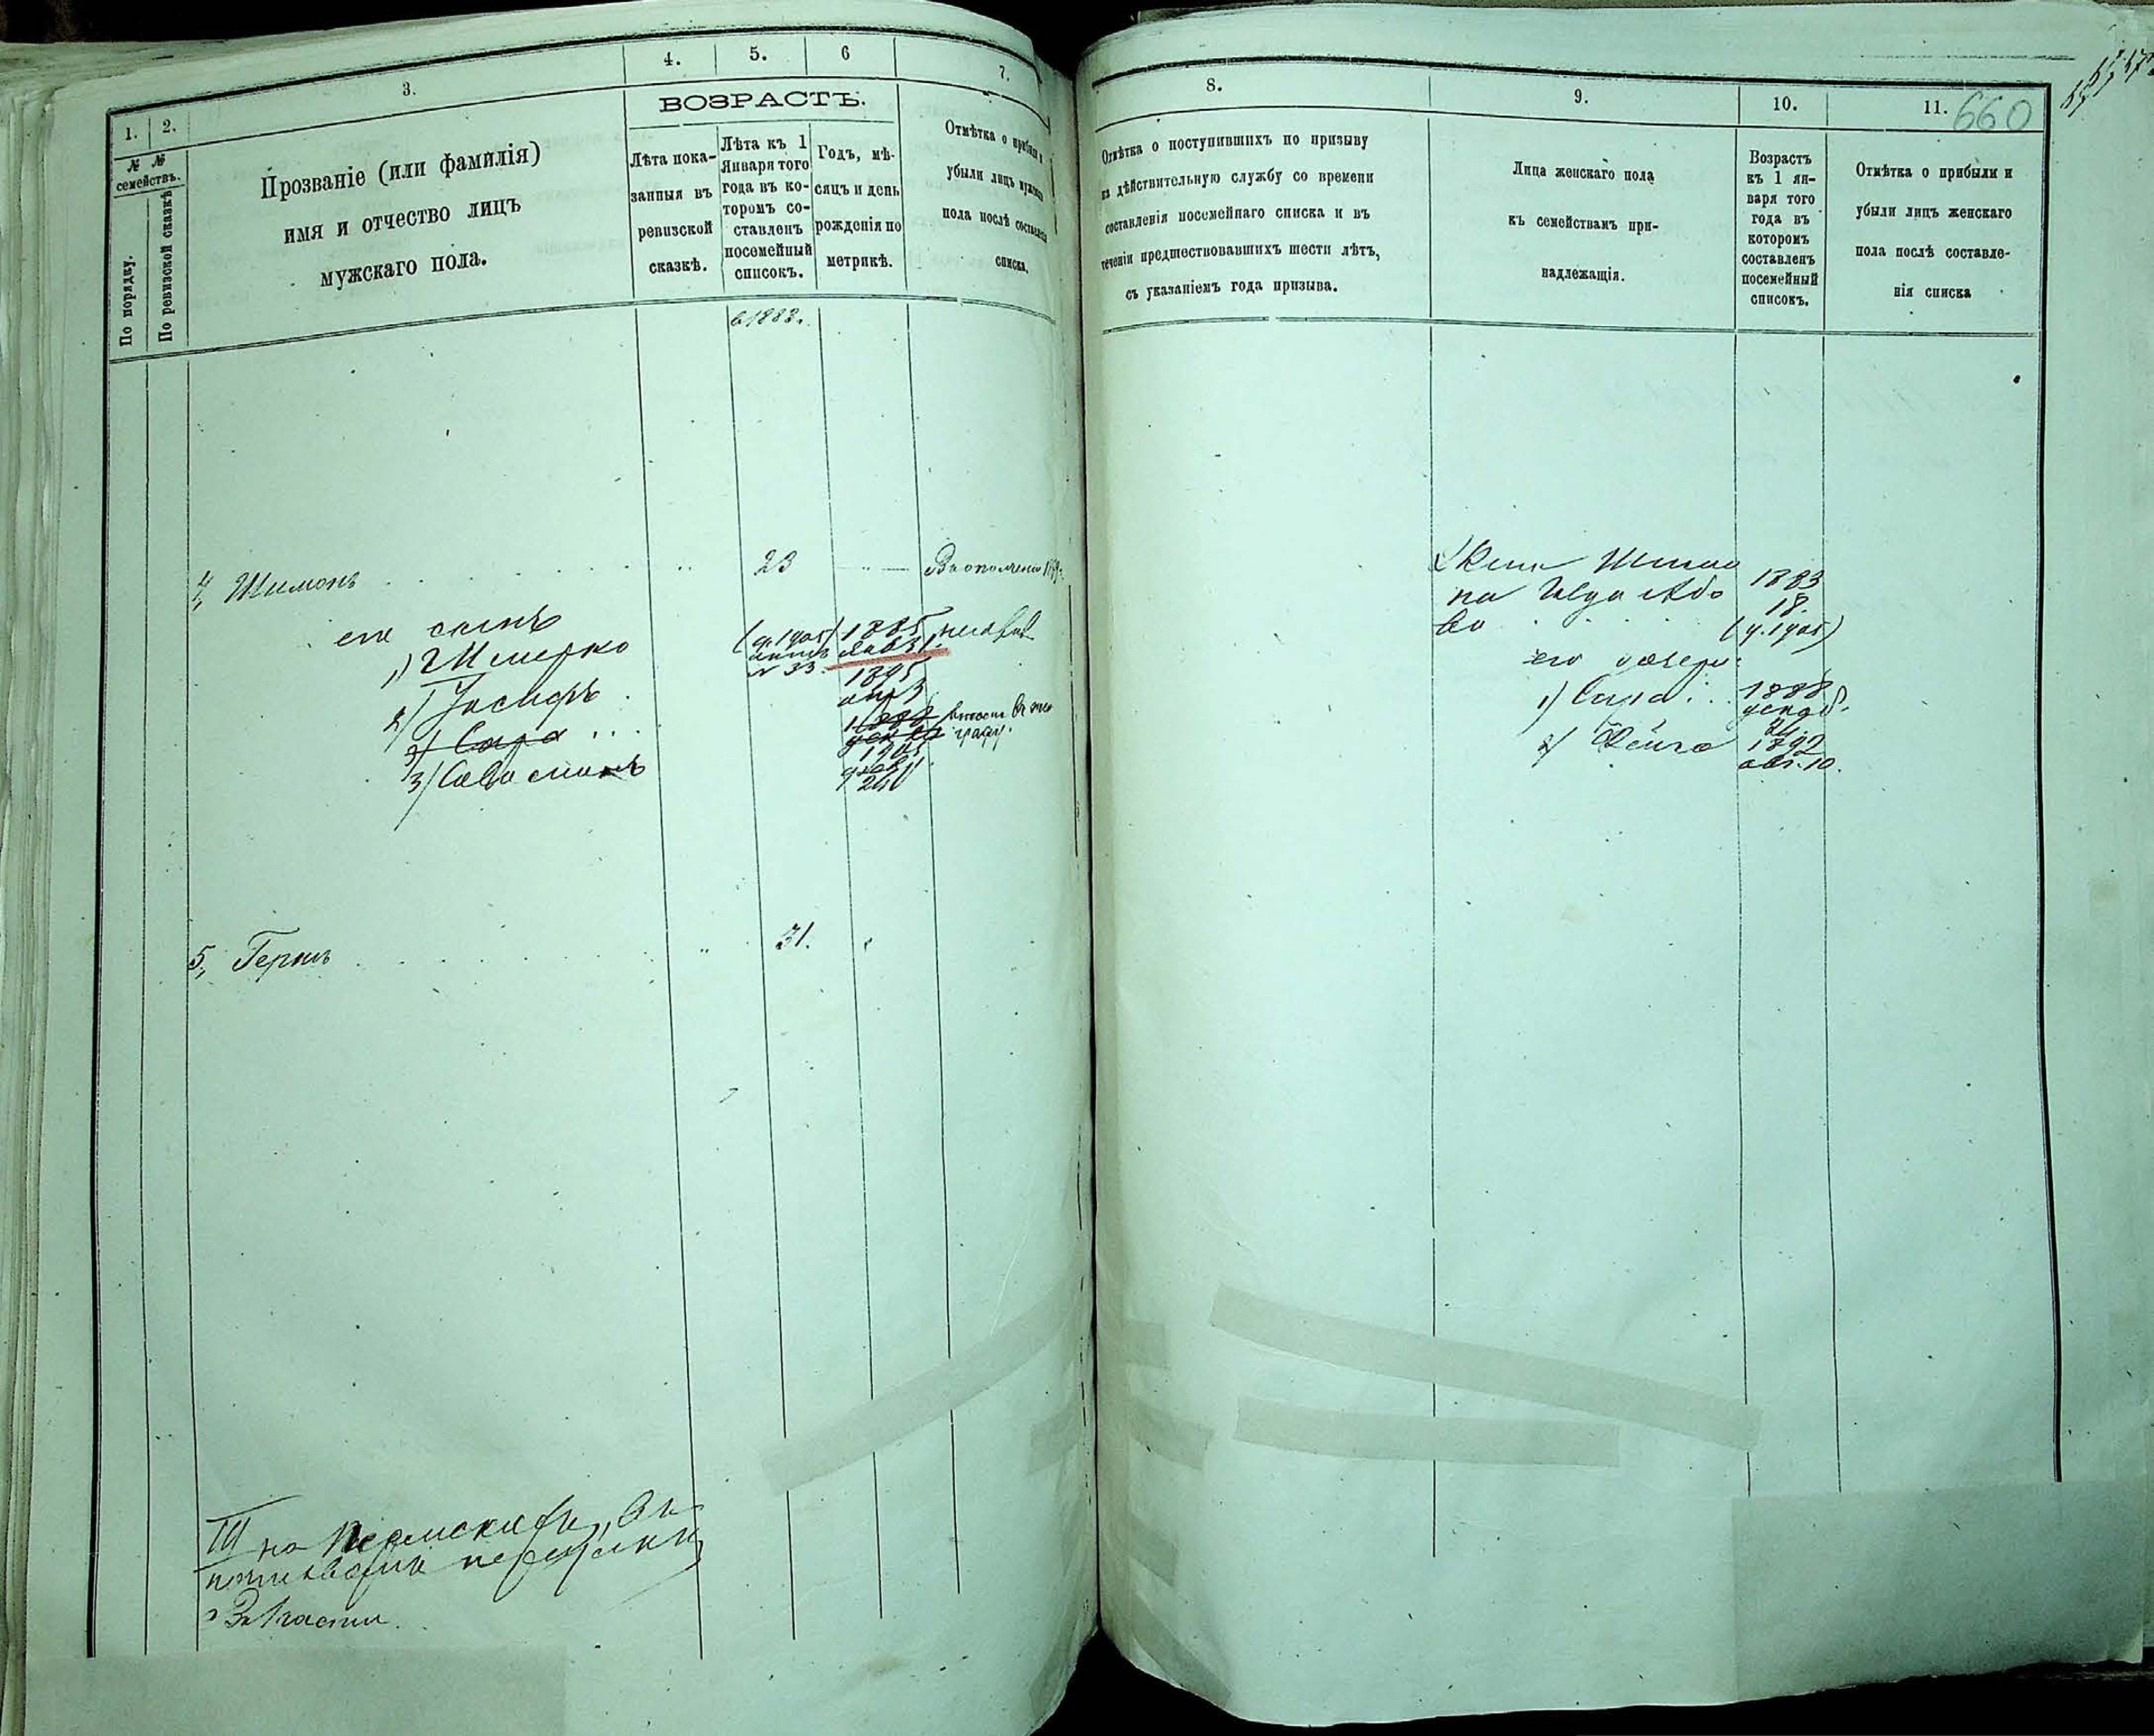 3.
4.
5.
6
7.
1.
2.
ВОЗРАСТЪ.
№ №
семействъ.
По порядку.
По ревизской сказкѣ
Прозваніе (или фамилія)
имя и отчество лицъ
мужскаго пола.
Лѣта пока-
занныя въ
ревизской
сказкѣ.
Лѣта къ 1
Января того
года въ ко-
торомъ со-
ставленъ
посемейный
списокъ.
Годъ, мѣ-
сяцъ и день
рожденія по
метрикѣ.
Отмѣтка о прибыли и
убыли лицъ мужскаго
пола послѣ составленія
списка.
1883.
4, Шимонъ 23
его сынъ
1) Шмерко (ч. 1905) 1885
№ 33.
2) Іосифъ 1895
апр 3
3) Сара 1888
3) Савостианъ 1905
24
5, Гершъ 31.
III на
3 части.
8.
9.
10.
11.
660
Отмѣтка о поступившихъ по призыву
на дѣйствительную службу со времени
составленія посемейнаго списка и въ
теченіи предшествовавшихъ шести лѣтъ,
съ указаніемъ года призыва.
Лица женскаго пола
къ семействамъ при-
надлежащія.
Возрастъ
къ 1 ян-
варя того
года въ
которомъ
составленъ
посемейный
списокъ.
Отмѣтка о прибыли и
убыли лицъ женскаго
пола послѣ составле-
нія списка
Жена Шимо
на 1883
18.
(ч. 1905)
его дочери:
1) Сара 1888
2) Фейга 1892
авг. 10.